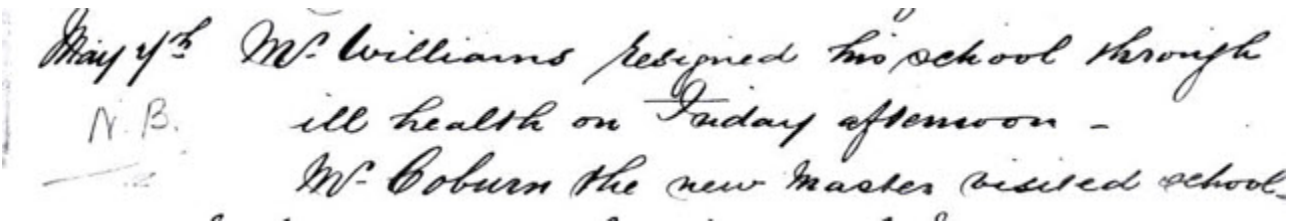 May 7th Mr. Williams resigned his school through
N.B. ill health on Friday afternoon -
Mr. Coburn the new Master visited school